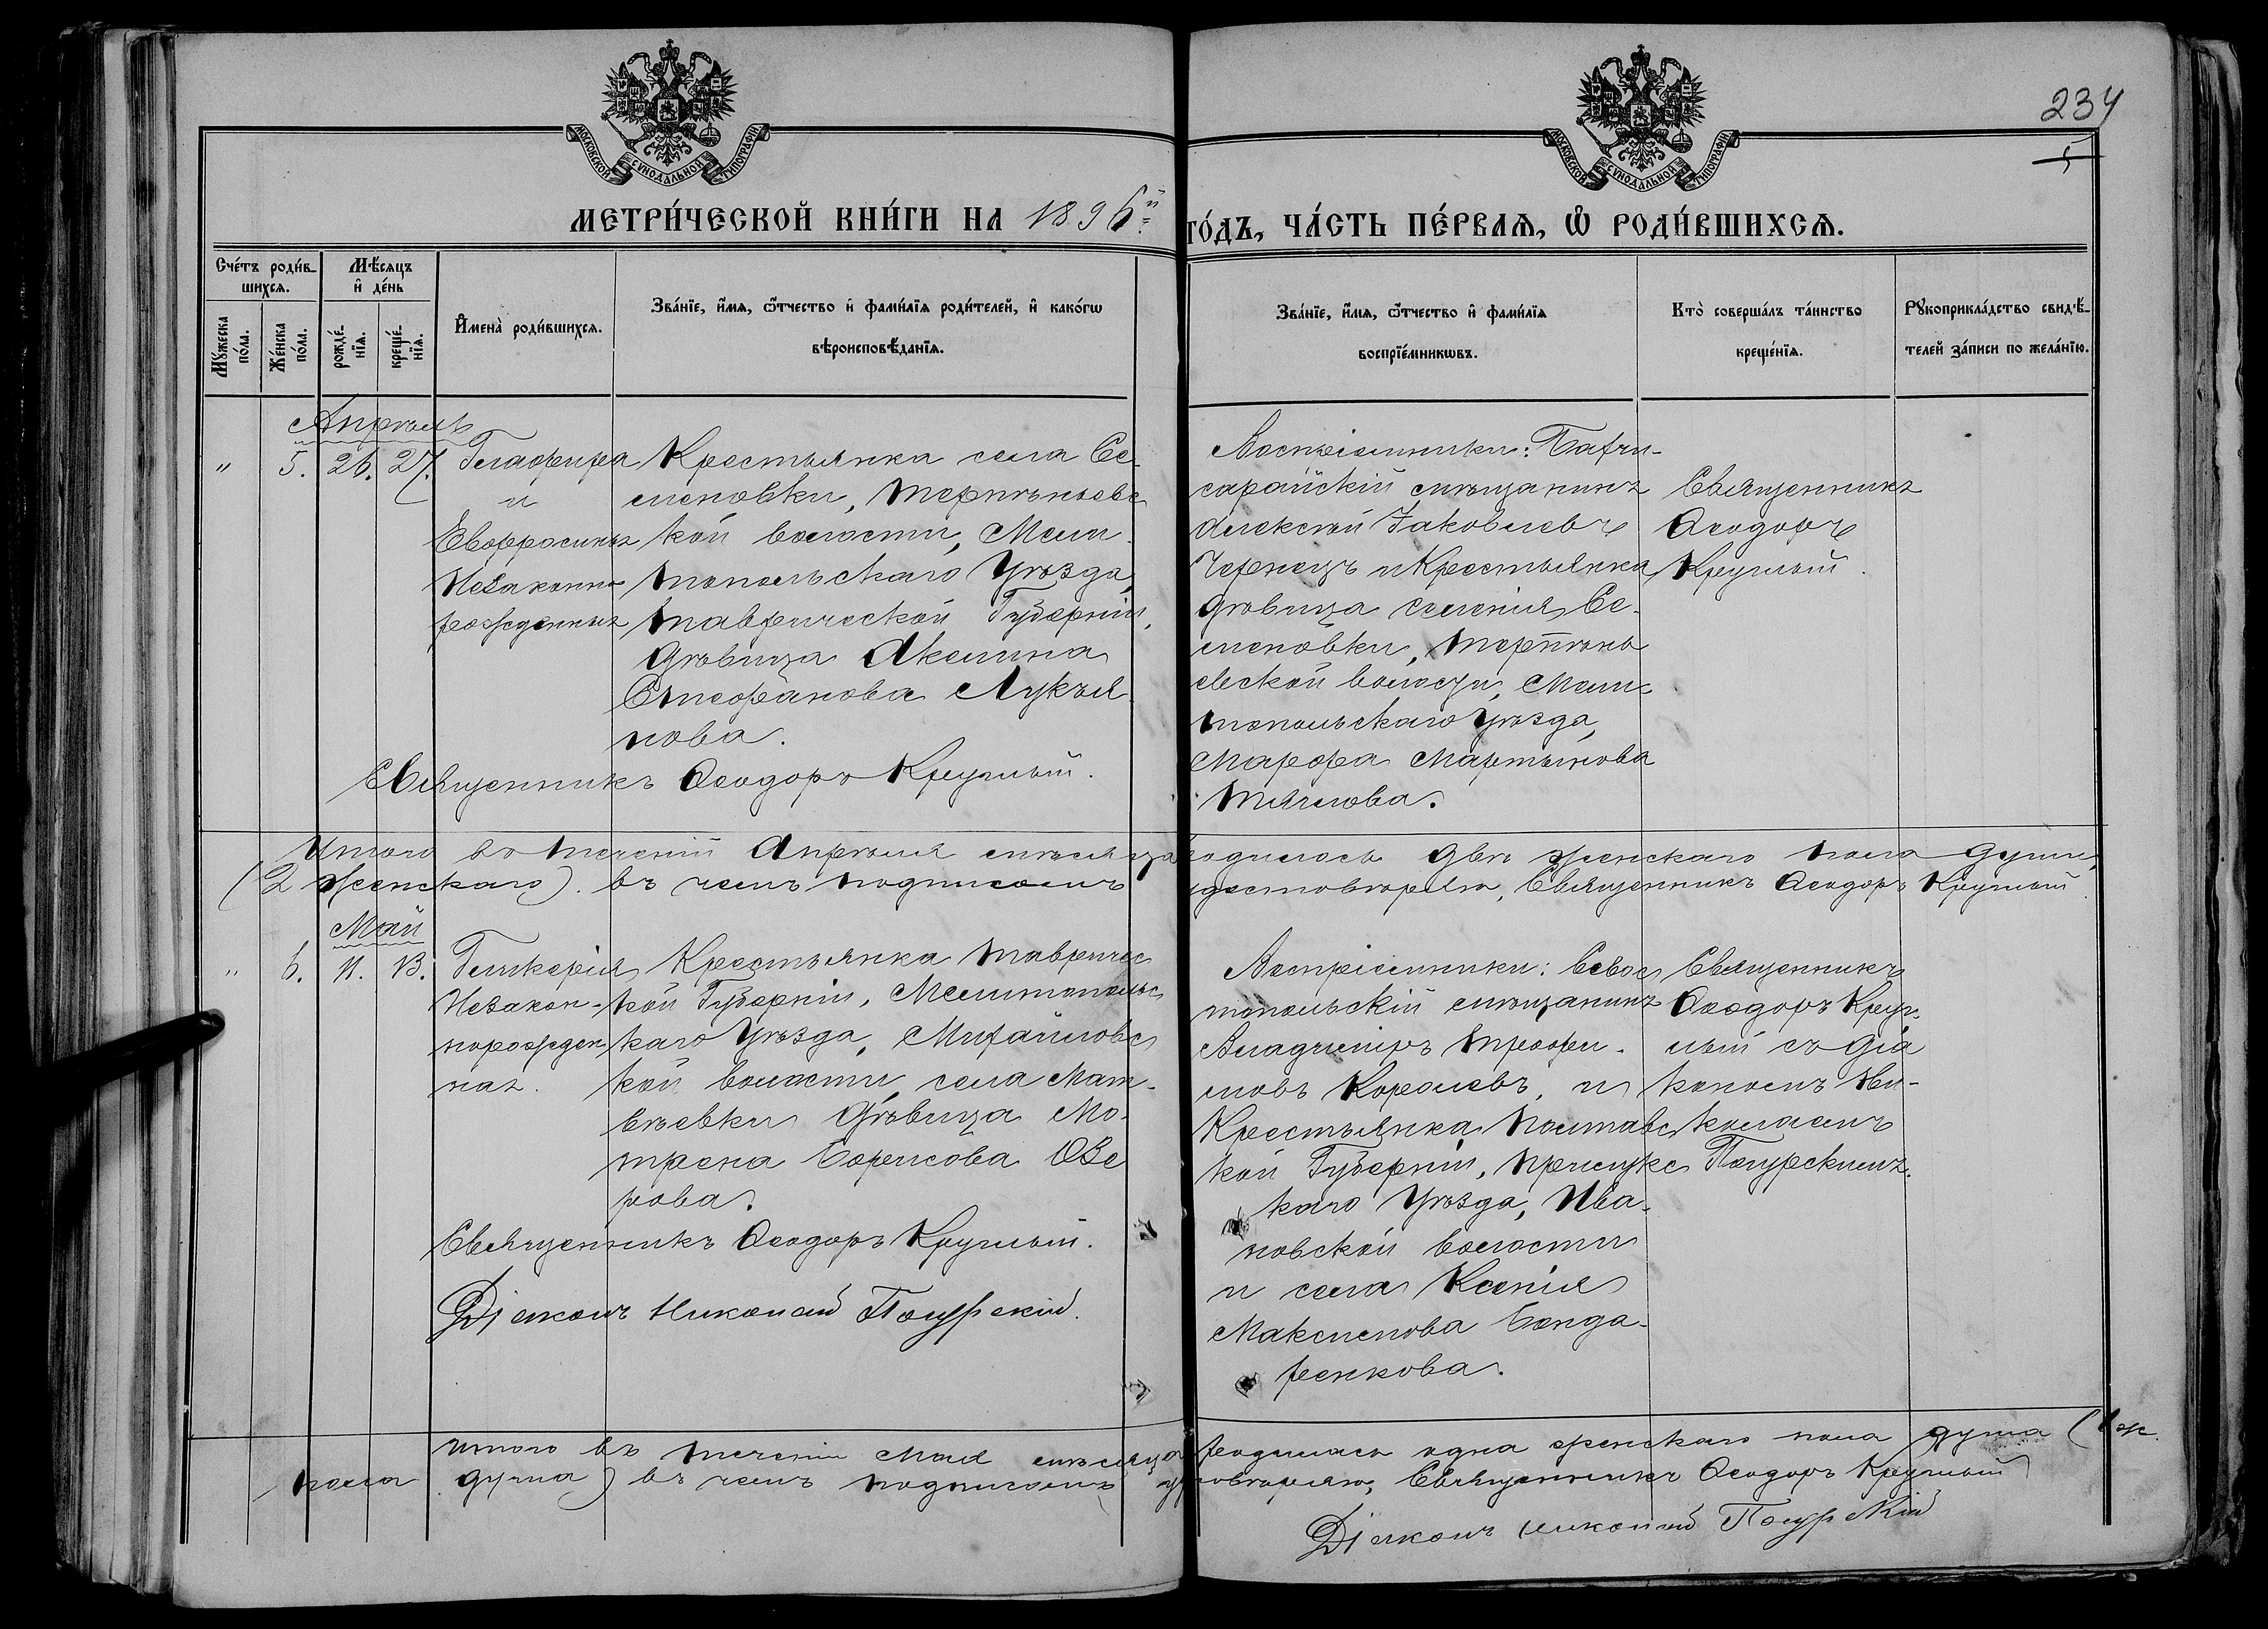 234
5
МОСКОВСКОЙ СѴНОДАЛЬНОЙ ТИПОГРАФІИ
МОСКОВСКОЙ СѴНОДАЛЬНОЙ ТИПОГРАФІИ
МЕТРИ́ЧЕСКОЙ КНИ́ГИ НА 1896й
ГО́ДЪ, ЧА́СТЬ ПЕ́РВАѦ, Ѽ РОДИ́ВШИХСѦ.
Сче́тъ роди́в-
шихсѧ.
Мѣ́сѧцъ
и҆ де́нь
Мꙋ́жеска по́ла.
Же́нска по́ла.
рожде́-
нїѧ.
креще́-
нїѧ.
И҆мена̀ роди́вшихсѧ.
Зва́нїе, и҆́мѧ, ѻ҆́тчество и҆ фами́лїѧ роди́телей, и҆ како́гѡ
вѣроисповѣ́данїѧ.
Зва́нїе, и҆́мѧ, ѻ҆́тчество и҆ фами́лїѧ
воспрїе́мникѡвъ.
Кто̀ соверша́лъ та́инство
креще́нїѧ.
Рꙋкоприкла́дство свидѣ́-
телей за́писи по жела́нїю.
Апрѣль
" 5. 26. 27.
Глафира
и
Евфросинія
Незаконно
рожденныя
Крестьянка села Се-
меновки, Терпѣньевс
кой волости, Мели-
топольскаго Уѣзда,
Таврической Губерніи,
дѣвица Акилина
Стефанова Лукья-
нова.
Священникъ Ѳеодоръ Круглый.
Воспріемники: Бахчи-
сарайскій мѣщанинъ
Алексѣй Іаковлевъ
Чернецъ и Крестьянка
дѣвица селенія Се-
меновки, Терпѣнь
евской волости, Мели-
топольскаго Уѣзда,
Марфа Мартынова
Тяглова.
Священникъ
Ѳеодоръ
Круглый.
Итого въ теченіи Апрѣля мѣсяца родилось двѣ женскаго пола души,
(2 женскаго). въ чемъ подписомъ удостовѣряю, Священникъ Ѳеодоръ Круглый.
Май
" 6. 11. 13.
Гликерія
Незакон-
норожден
ная.
Крестьянка Тавричес
кой Губерніи, Мелитопольс
каго Уѣзда, Михайловс
кой волости села Мат-
вѣевки дѣвица Мо-
трена Борисова Озе
рова.
Священникъ Ѳеодоръ Круглый.
Діаконъ Николай Погурскій.
Воспріемники: Севас
топольскій мѣщанинъ
Владиміръ Трофи-
мовъ Королевъ, и
Крестьянка Полтавс
кой Губерніи, Прилукс
каго Уѣзда, Ива-
новской волости
и села Ксенія
Максимова Бонда-
ренкова.
Священникъ
Ѳеодоръ Круг-
лый съ Діа
кономъ Ни-
колаемъ
Погурскимъ.
Итого въ теченіи Мая мѣсяца родилась одна женскаго пола душа (1 ж.
пола душа) въ чемъ подписомъ удостовѣряю, Священникъ Ѳеодоръ Круглый
Діаконъ Николай Погурскій